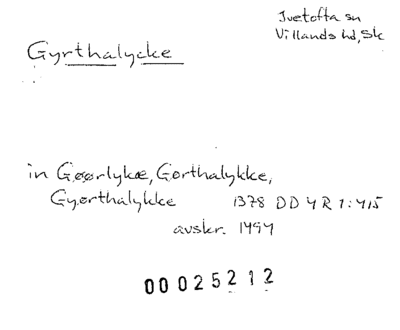 Ivetofta sn
Villands hd, Sk
Gyrthalycke
in Gøørlykæ, Gørthalykke,
Gyørthalykke 1378 DD 4 R 1:415
avskr. 1494
00025212